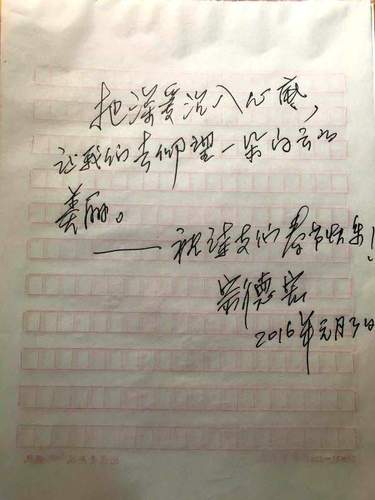 把深爱沉入心底，
让我们去仰望一朵白云的
美丽。
——祝读友们春节快乐！
德宏
2016年元月3日